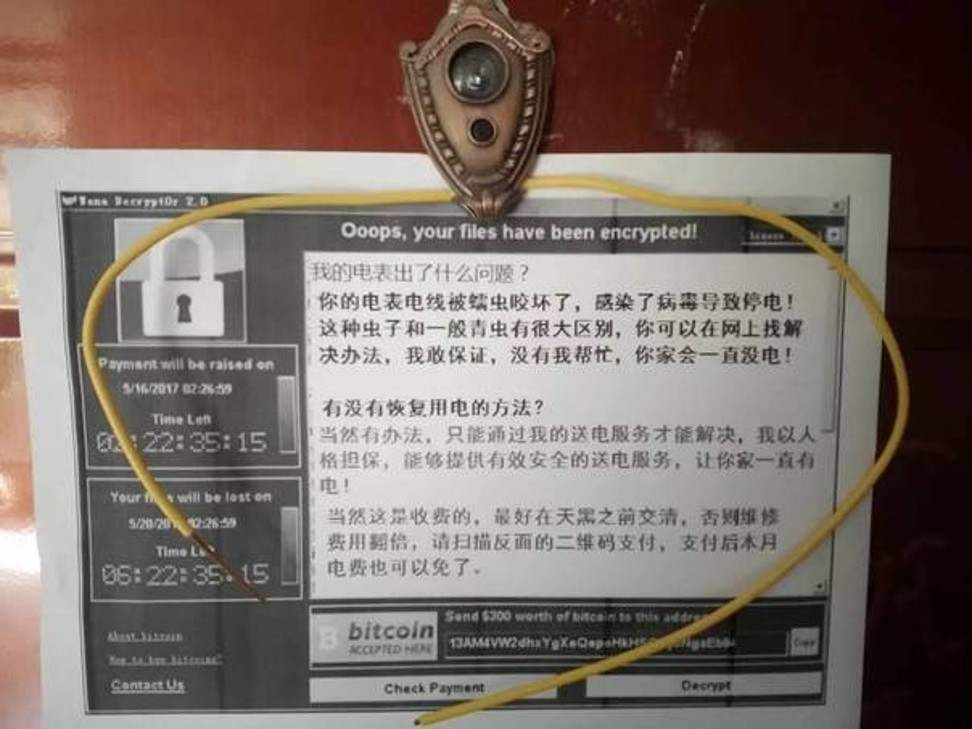 Wana Decrypt0r 2.0
Ooops, your files have been encrypted!
我的电表出了什么问题？
你的电表电线被蠕虫咬坏了，感染了病毒导致停电！
这种虫子和一般青虫有很大区别，你可以在网上找解
决办法，我敢保证，没有我帮忙，你家会一直没电！
有没有恢复用电的方法？
当然有办法，只能通过我的送电服务才能解决，我以人
格担保，能够提供有效安全的送电服务，让你家一直有
电！
当然这是收费的，最好在天黑之前交清，否则维修
费用翻倍，请扫描反面的二维码支付，支付后本月
电费也可以免了。
Payment will be raised on
5/16/2017 02:26:59
Time Left
:22:35:15
Your will be lost on
02:26:59
Time
06:22:35:15
About bitcoin
How to buy bitcoins?
Contact Us
bitcoin
ACCEPTED HERE
Send $300 worth of bitcoin to this
Copy
Check Payment
Decrypt